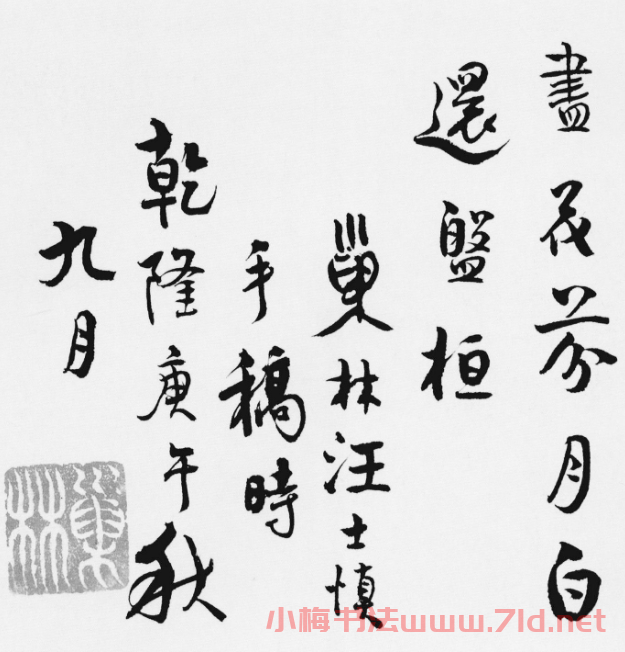 盡茂芬月白
還盤桓
巢林汪士慎
手稿時
乾隆庚午秋
九月
巢林
小梅书法www.7ld.net